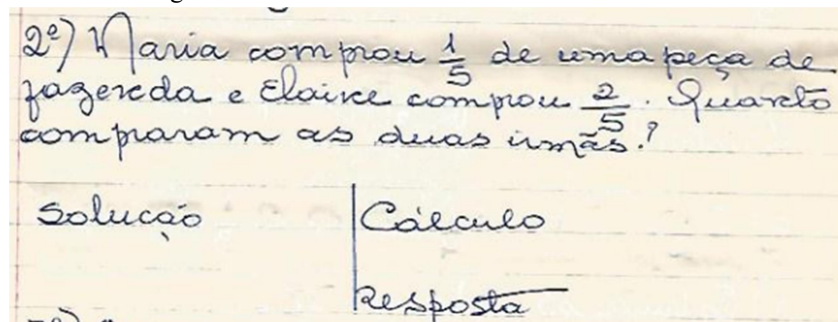 2º) Maria comprou 1/5 de uma peça de
fazenda e Elaine comprou 2/5. Quanto
compraram as duas irmãs?
Solução
Cálculo
Resposta